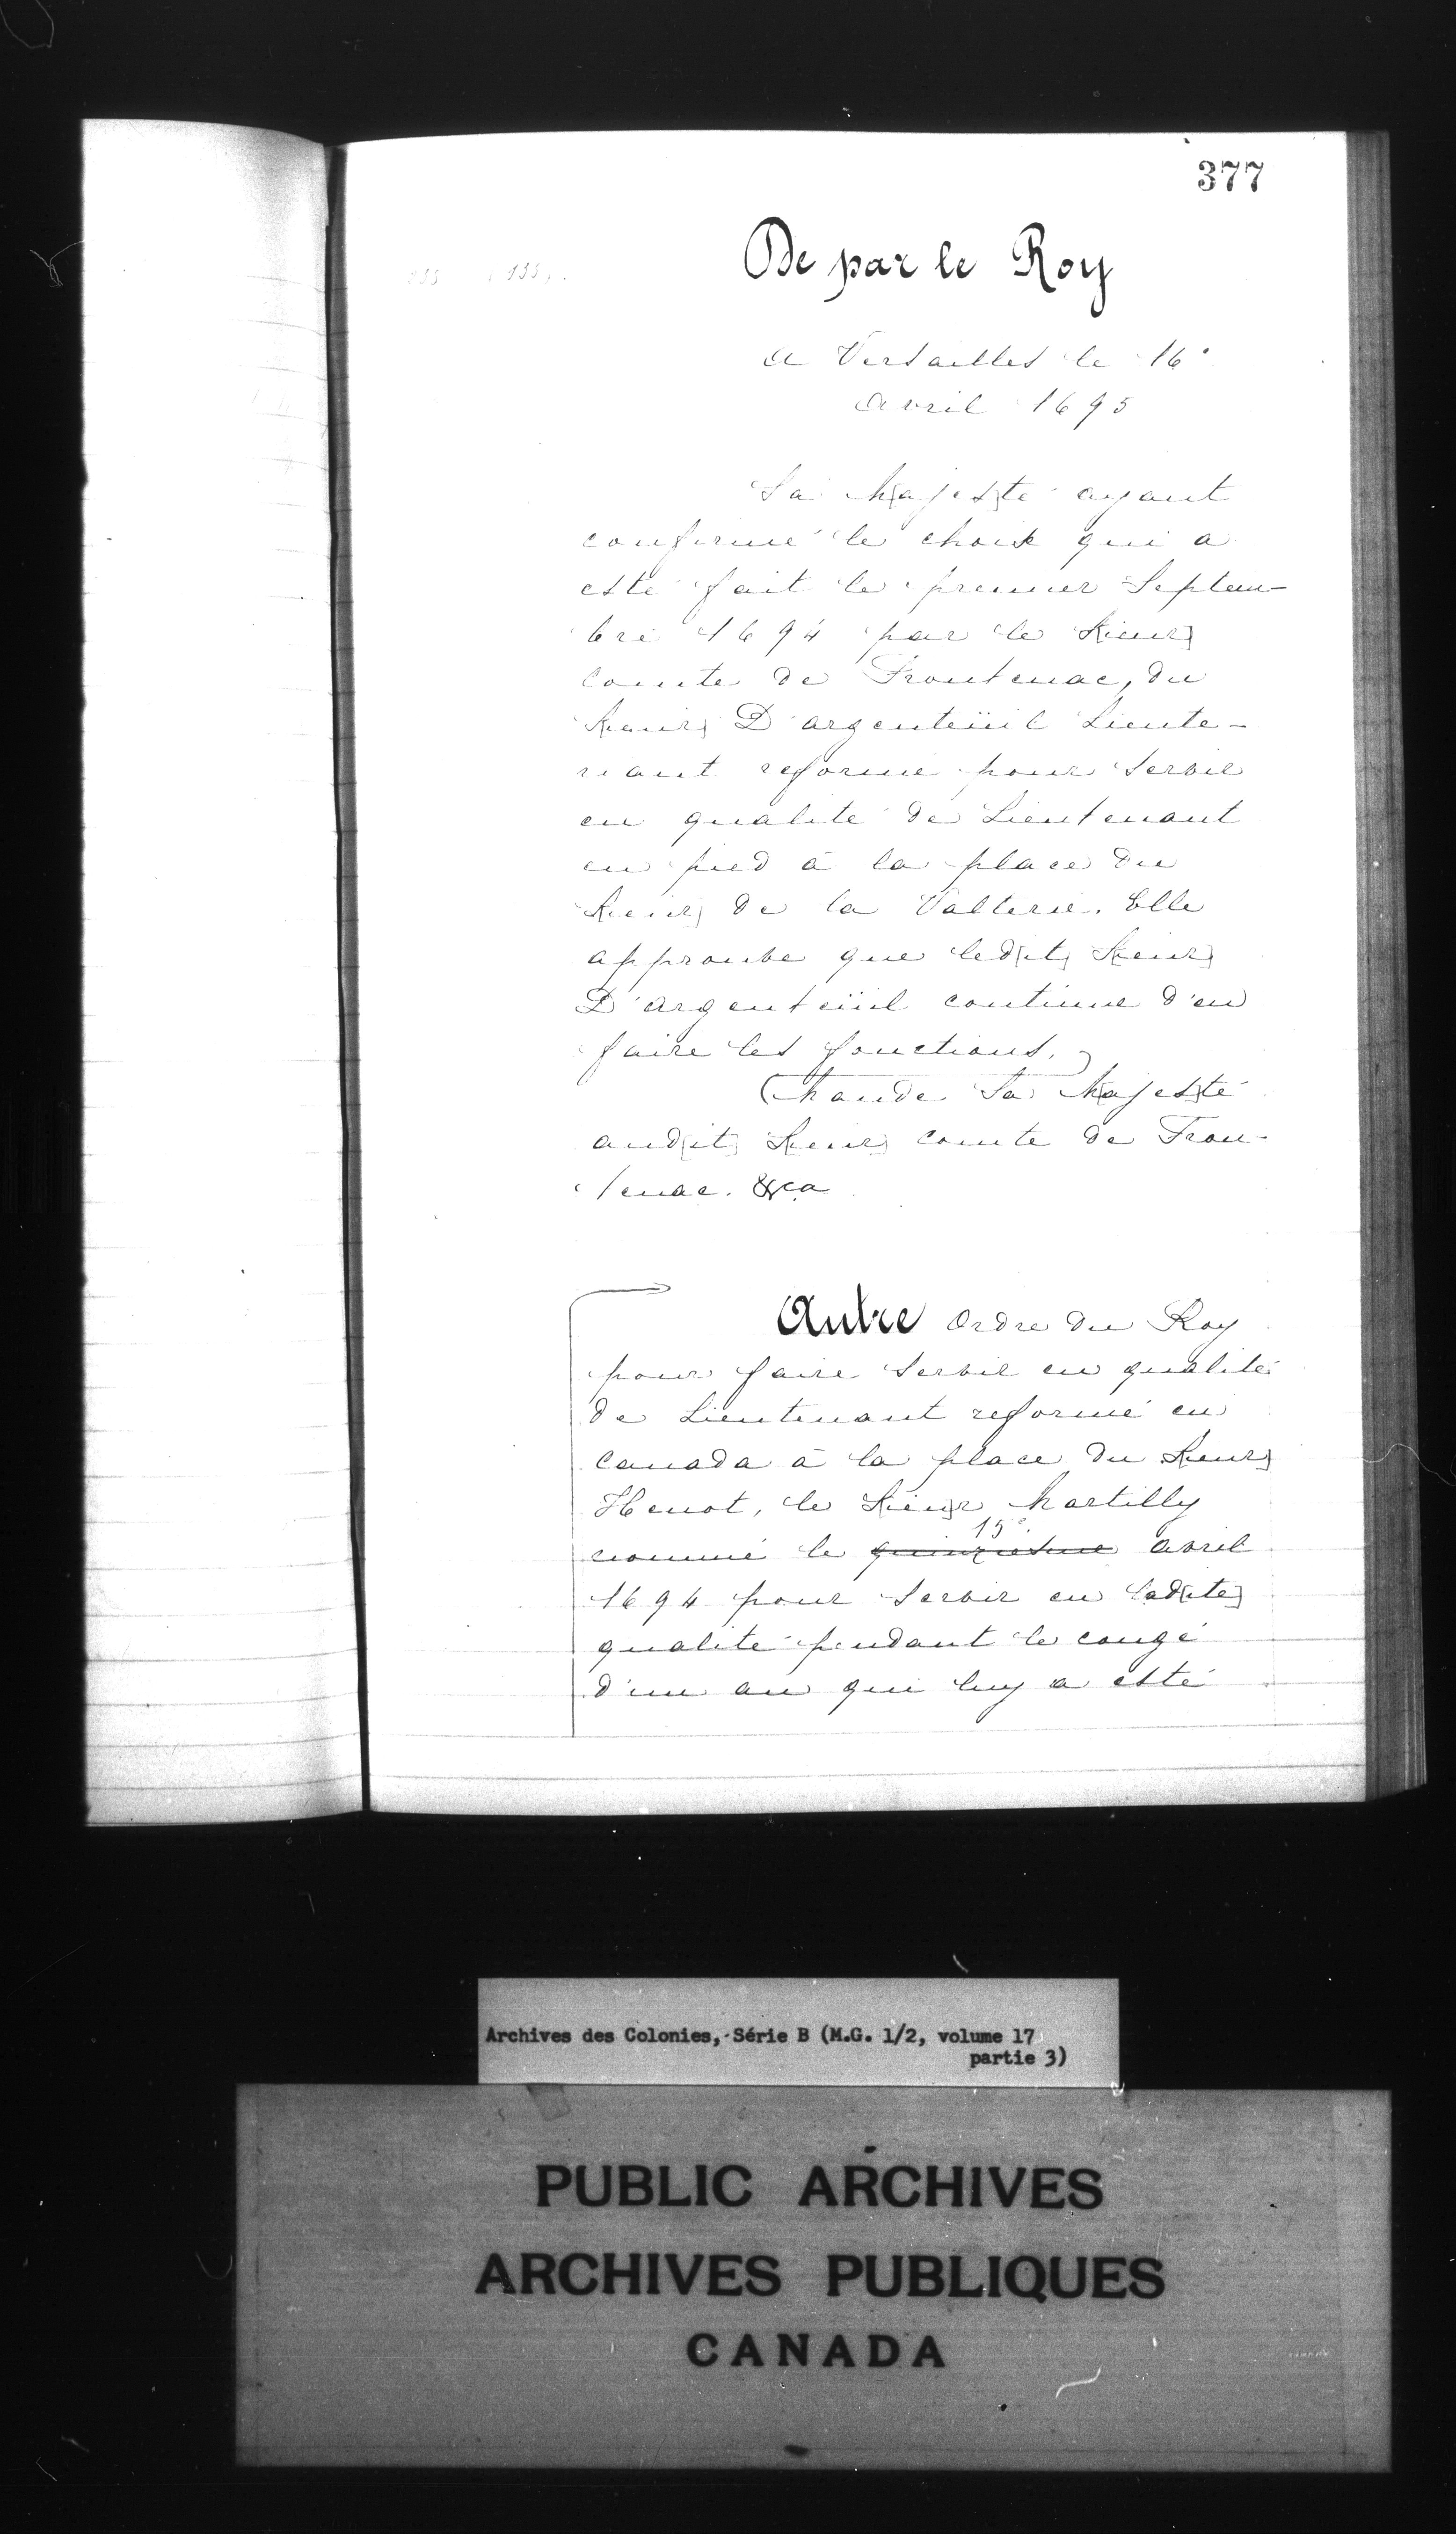 377
De par le Roy
a Versailles le 16e
avril 1695
Sa M[ajes]té ayant
confirmé le choix qui a
esté fait le premier Septem-
bre 1694 par le S[ieur]
comte de Frontenac, du
S[ieur] D'argenteüil Lieute-
nant reformé pour servir
en qualité de Lieutenant
en pied à la place du
S[ieur] de la Valterie. Elle
approuve que led[it] S[ieur]
D'argenteüil continue d'en
faire les fonctions.
Mande Sa M[ajes]té
aud[it] S[ieur] comte de Fron-
tenac. &ca
Autre ordre du Roy
pour faire servir en qualité
de Lieutenant reformé en
canada à la place du S[ieur]
Henot, le S[ieu]r Martilly
nommé le quinziesme 15e avril
1694 pour servir en lad[ite]
qualité pendant le congé
d'un an qui luy a esté
Archives des Colonies, Série B (M.G. 1/2, volume 17
partie 3)
PUBLIC ARCHIVES
ARCHIVES PUBLIQUES
CANADA